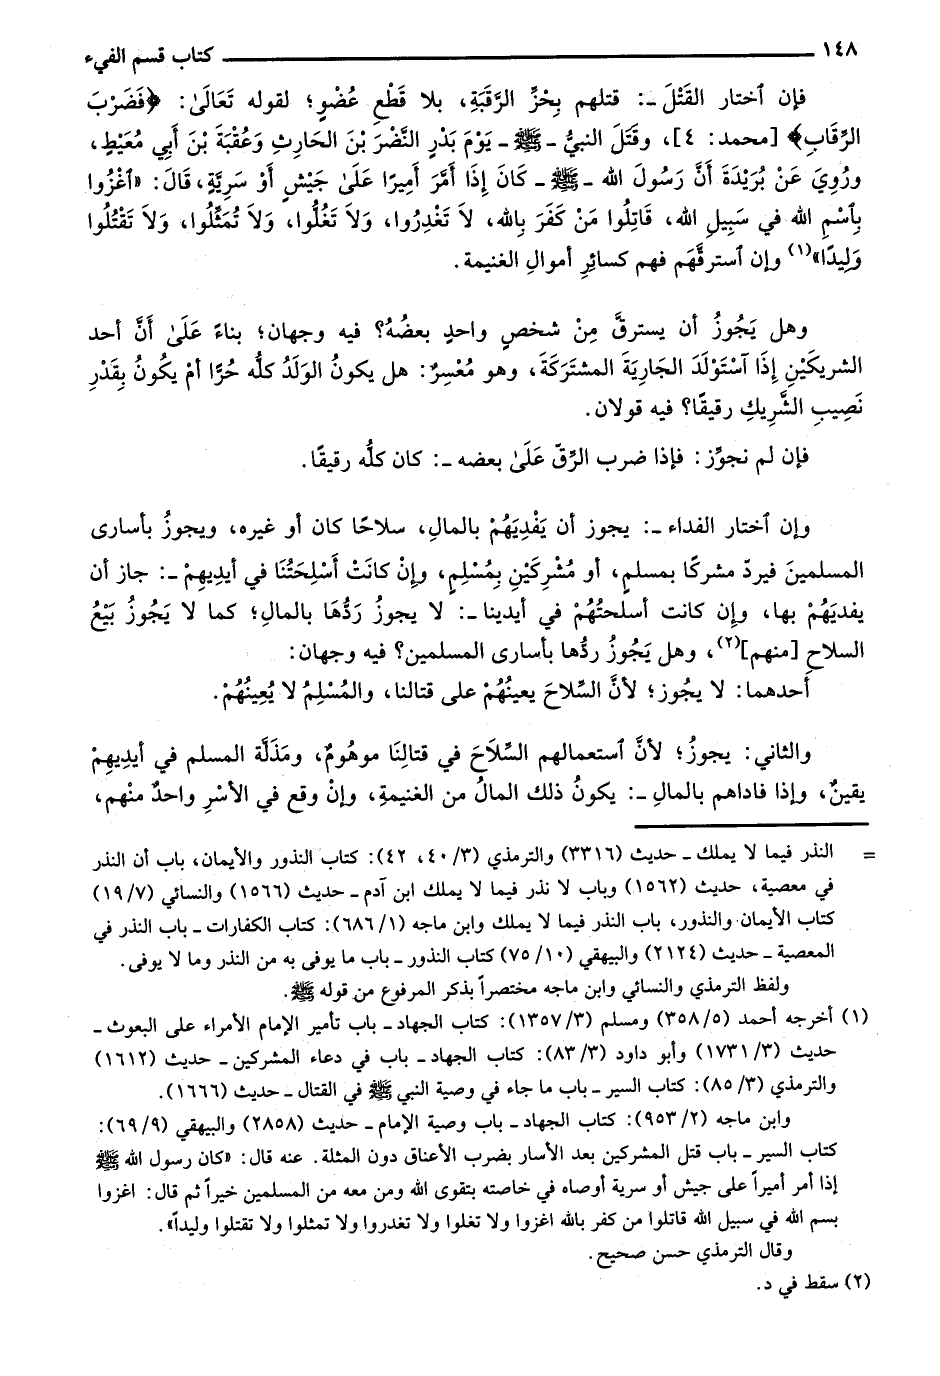 ١٤٨ كتاب قسم الفيء
فإن ٱختار القَتْلَ ـ: قتلهم بِحَزِّ الرَّقَبَةِ، بلا قَطْعِ عُضْوٍ؛ لقوله تَعَالَىٰ: ﴿فَضَرْبَ
الرِّقَابِ﴾ [محمد: ٤]، وقَتَلَ النبيُّ ـ ﷺ ـ يَوْمَ بَدْرٍ النَّضْرَ بْنَ الحَارِثِ وَعُقْبَةَ بْنَ أَبِي مُعَيْطٍ،
ورُوِيَ عَنْ بُرَيْدَةَ أَنَّ رَسُولَ الله ـ ﷺ ـ كَانَ إِذَا أَمَّرَ أَمِيرًا عَلَىٰ جَيْشٍ أَوْ سَرِيَّةٍ، قَالَ: «ٱغْزُوا
بِٱسْمِ الله في سَبِيلِ الله، قَاتِلُوا مَنْ كَفَرَ بِالله، لاَ تَغْدِرُوا، وَلاَ تَغُلُّوا، وَلاَ تُمَثِّلُوا، وَلاَ تَقْتُلُوا
وَلِيدًا»(١) وإن ٱسترقَّهَم فهم كسائِرِ أموالِ الغنيمة.
وهل يَجُوزُ أن يسترقَّ مِنْ شخصٍ واحدٍ بعضُهُ؟ فيه وجهان؛ بناءً عَلَىٰ أَنَّ أحد
الشريكَيْنِ إِذَا ٱسْتَوْلَدَ الجَارِيَةَ المشتَرَكَةَ، وهو مُعْسِرٌ: هل يكونُ الوَلَدُ كلُّه حُرًّا أمْ يكُونُ بِقَدْرِ
نَصِيبِ الشَّرِيكِ رقيقًا؟ فيه قولان.
فإن لم نجوِّز: فإذا ضرب الرِّقّ عَلَىٰ بعضه ـ: كان كلُّه رقيقًا.
وإن ٱختار الفداء ـ: يجوز أن يَفْدِيَهُمْ بالمالِ، سلاحًا كان أو غيره، ويجوزُ بأسارى
المسلمينَ فيردّ مشركًا بمسلمٍ، أو مُشْرِكَيْنِ بِمُسْلِمٍ، وإِنْ كانَتْ أَسْلِحَتُنَا في أيديهِمْ ـ: جاز أن
يفديَهُمْ بها، وإِن كانت أسلحتُهُمْ في أيدينا ـ: لا يجوز رَدُّهَا بالمالِ؛ كما لا يَجُوزُ بَيْعُ
السلاحِ [منهم](٢)، وهل يَجُوزُ ردُّها بأسارى المسلمين؟ فيه وجهان:
أحدهما: لا يجُوز؛ لأنَّ السِّلاحَ يعينُهُمْ على قتالنا، والمُسْلِمُ لا يُعِينُهُمْ.
والثاني: يجوزُ؛ لأنَّ ٱستعمالهم السِّلاَحَ في قتالِنَا موهُومٌ، ومَذَلَّة المسلم في أيدِيِهِمْ
يقينٌ، وإذا فاداهم بالمالِ ـ: يكونُ ذلك المالُ من الغنيمةِ، وإنْ وقع في الأسْرِ واحدٌ منْهم،
= النذر فيما لا يملك ـ حديث (٣٣١٦) والترمذي (٣/ ٤٠، ٤٢): كتاب النذور والأيمان، باب أن النذر
في معصية، حديث (١٥٦٢) وباب لا نذر فيما لا يملك ابن آدم ـ حديث (١٥٦٦) والنسائي (٧/ ١٩)
كتاب الأيمان والنذور، باب النذر فيما لا يملك وابن ماجه (١/ ٦٨٦): كتاب الكفارات ـ باب النذر في
المعصية ـ حديث (٢١٢٤) والبيهقي (١٠/ ٧٥) كتاب النذور ـ باب ما يوفى به من النذر وما لا يوفى.
ولفظ الترمذي والنسائي وابن ماجه مختصراً بذكر المرفوع من قوله ﷺ.
(١) أخرجه أحمد (٥/ ٣٥٨) ومسلم (٣/ ١٣٥٧): كتاب الجهاد ـ باب تأمير الإمام الأمراء على البعوث ـ
حديث (٣/ ١٧٣١) وأبو داود (٣/ ٨٣): كتاب الجهاد ـ باب في دعاء المشركين ـ حديث (١٦١٢)
والترمذي (٣/ ٨٥): كتاب السير ـ باب ما جاء في وصية النبي ﷺ في القتال ـ حديث (١٦٦٦).
وابن ماجه (٢/ ٩٥٣): كتاب الجهاد ـ باب وصية الإمام ـ حديث (٢٨٥٨) والبيهقي (٩/ ٦٩):
كتاب السير ـ باب قتل المشركين بعد الأسار بضرب الأعناق دون المثلة. عنه قال: «كان رسول الله ﷺ
إذا أمر أميراً على جيش أو سرية أوصاه في خاصته بتقوى الله ومن معه من المسلمين خيراً ثم قال: اغزوا
بسم الله في سبيل الله قاتلوا من كفر بالله اغزوا ولا تغلوا ولا تغدروا ولا تمثلوا ولا تقتلوا وليداً».
وقال الترمذي حسن صحيح.
(٢) سقط في د.